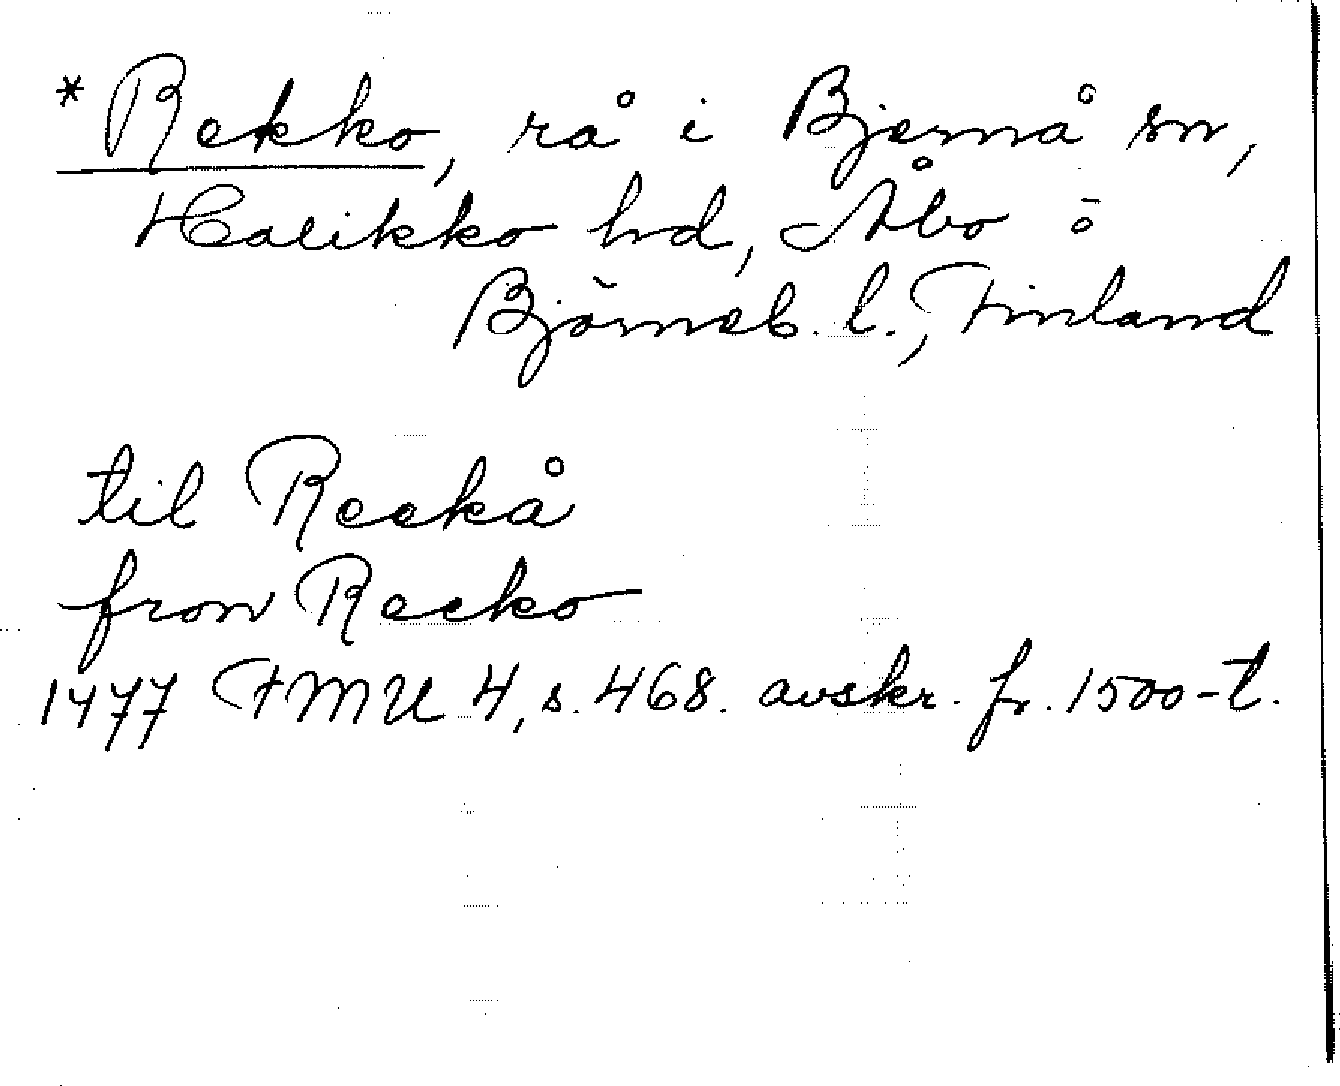 *Rekko, rå i Bjernå sn,
Halikko hd, Åbo o
Björneb. l., Finland
til Reckå
from Recko
1477 FMU 4, s. 468. avskr. fr. 1500-t.